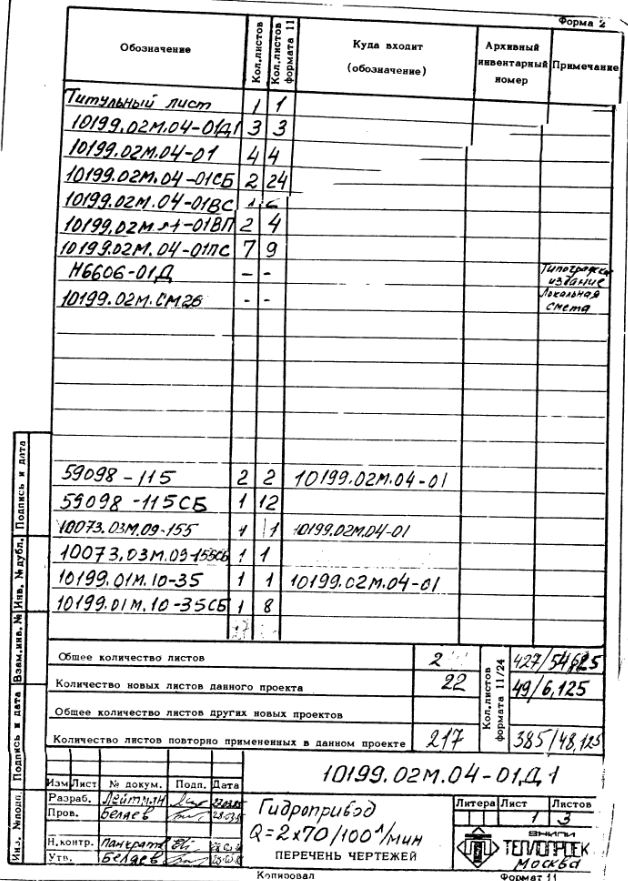 Форма 2
Обозначение Кол.листов Кол.листов формата 11 Куда входит (обозначение) Архивный инвентарный номер Примечание
Титульный лист 1 1
10199.02М.04-01Д1 3 3
10199.02М.04-01 4 4
10199.02М.04-01СБ 2 24
10199.02М.04-01ВС
10199.02М 01ВП 2 4
10199.02М.04-01ПС 7 9
Н6606-01Д - - издание
10199.02М.СМ26 - - Локальная смета
59098-115 2 2 10199.02М.04-01
59098-115СБ 1 12
10073.03М.09-155 1 1 10199.02М.04-01
10073.03М.09-155СБ 1 1
10199.01М.10-35 1 1 10199.02М.04-01
10199.01М.10-35СБ 1 8
Общее количество листов 427/
Количество новых листов данного проекта 22 49/6,125
Общее количество листов других новых проектов
Количество листов повторно примененных в данном проекте 217 385/48,125
Кол.листов формата 11/24
10199.02М.04-01Д1
Изм Лист № докум. Подп. Дата
Разраб.
Пров. Беляев
Н.контр.
Утв. Беляев
Гидропривод
Q=2х70/100 л/мин
ПЕРЕЧЕНЬ ЧЕРТЕЖЕЙ
Литера Лист Листов
1 3
ВНИПИ
ТЕПЛОПРОЕК
Москва
Копировал Формат 11
Инв. №подл Подпись и дата Взам.инв. № Инв. №дубл. Подпись и дата